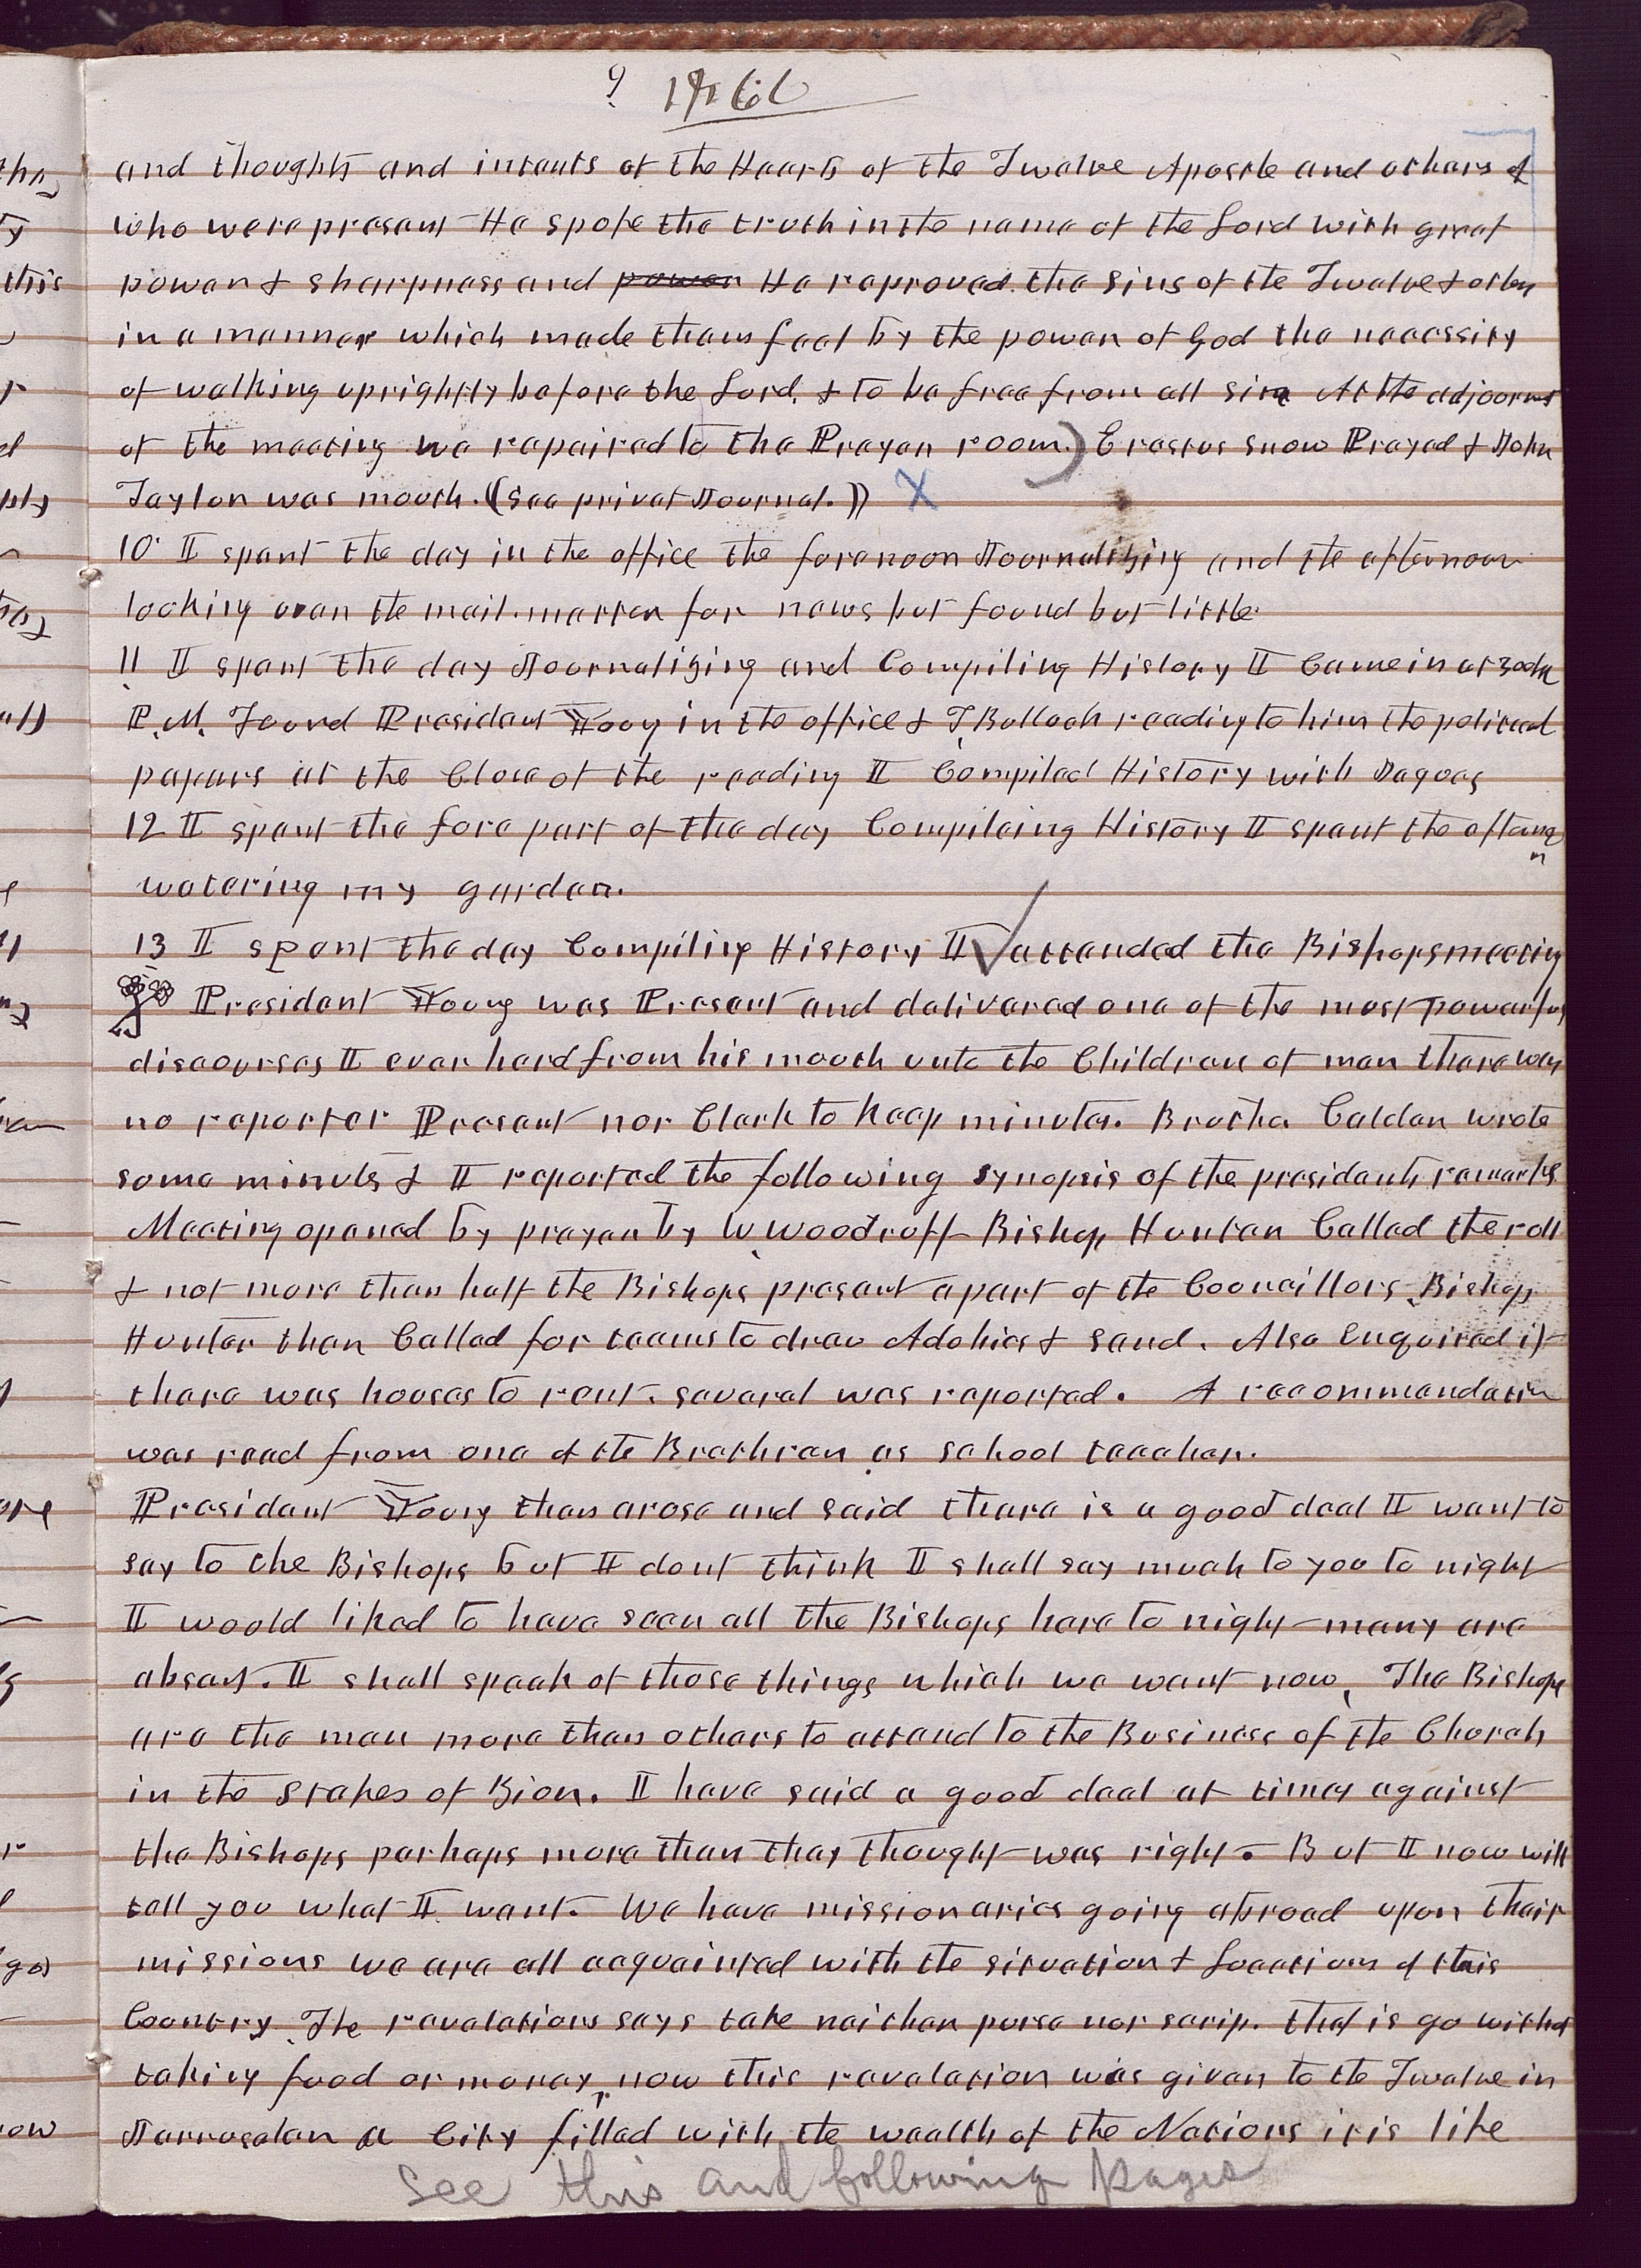 9 1866
and thoughts and intents of the Hearts of the Twelve Apostle and others of
who were present He spoke the truth in the name of the Lord with great
power & sharpness and power He reproved the sins of the Twelve & other
in a manner which made them feel by the power of God the necessity
of walking uprightly before the Lord, & to be free from all sin At the adjournmt
of the meeting we repaired to the Prayer room.) Erastus Snow Prayed & John
Taylor was mouth. ((See privat Journal.)) X
10 I spent the day in the office the forenoon Journalizing and the afternoon
looking over the mail matter for news but found but little.
11 I spent the day Journalizing and Compiling History I Came in at 3 oclk
P.M. Found President Young in the office & T. Bulloch reading to him the political
papers at the Close of the reading I Compiled History with Jaques
12 I spent the fore part of the day Compileing History I spent the afternn
watering my garden.
13 I spent the day Compiling History I attended the Bishops meeting
President Young was Present and delivered one of the most powerful
discourses I ever herd from his mouth unto the Children of men there was
no reporter Present nor Clerk to keep minutes. Brother Calder wrote
some minutes & I reported the following synopsis of the presidents remarks
Meeting opened by prayer by W. Woodruff Bishop Hunter Called the roll
& not more than half the Bishops present a part of the Councillors. Bishop
Hunter then Called for teams to draw Adobies & sand. Also Enquired if
there was houses to rent. several was reported. A recommendation
was read from one of the Brethren as school teacher.
President Young then arose and said there is a good deal I want to
say to the Bishops but I dont think I shall say much to you to night
I would liked to have seen all the Bishops here to night many are
absent. I shall speak of those things which we want now, The Bishops
are the men more than others to attend to the Business of the Church
in the Stakes of Zion. I have said a good deal at times against
the Bishops perhaps more than they thought was right. But I now will
tell you what I want. We have missionaries going abroad upon their
missions we are all acquainted with the situation & Location of this
Country. The revelations says take neither purse nor scrip. that is go without
taking food or money, now this revelation was given to the Twelve in
Jarrusalem a City filled with the wealth of the Nations it is like
see this and following pages